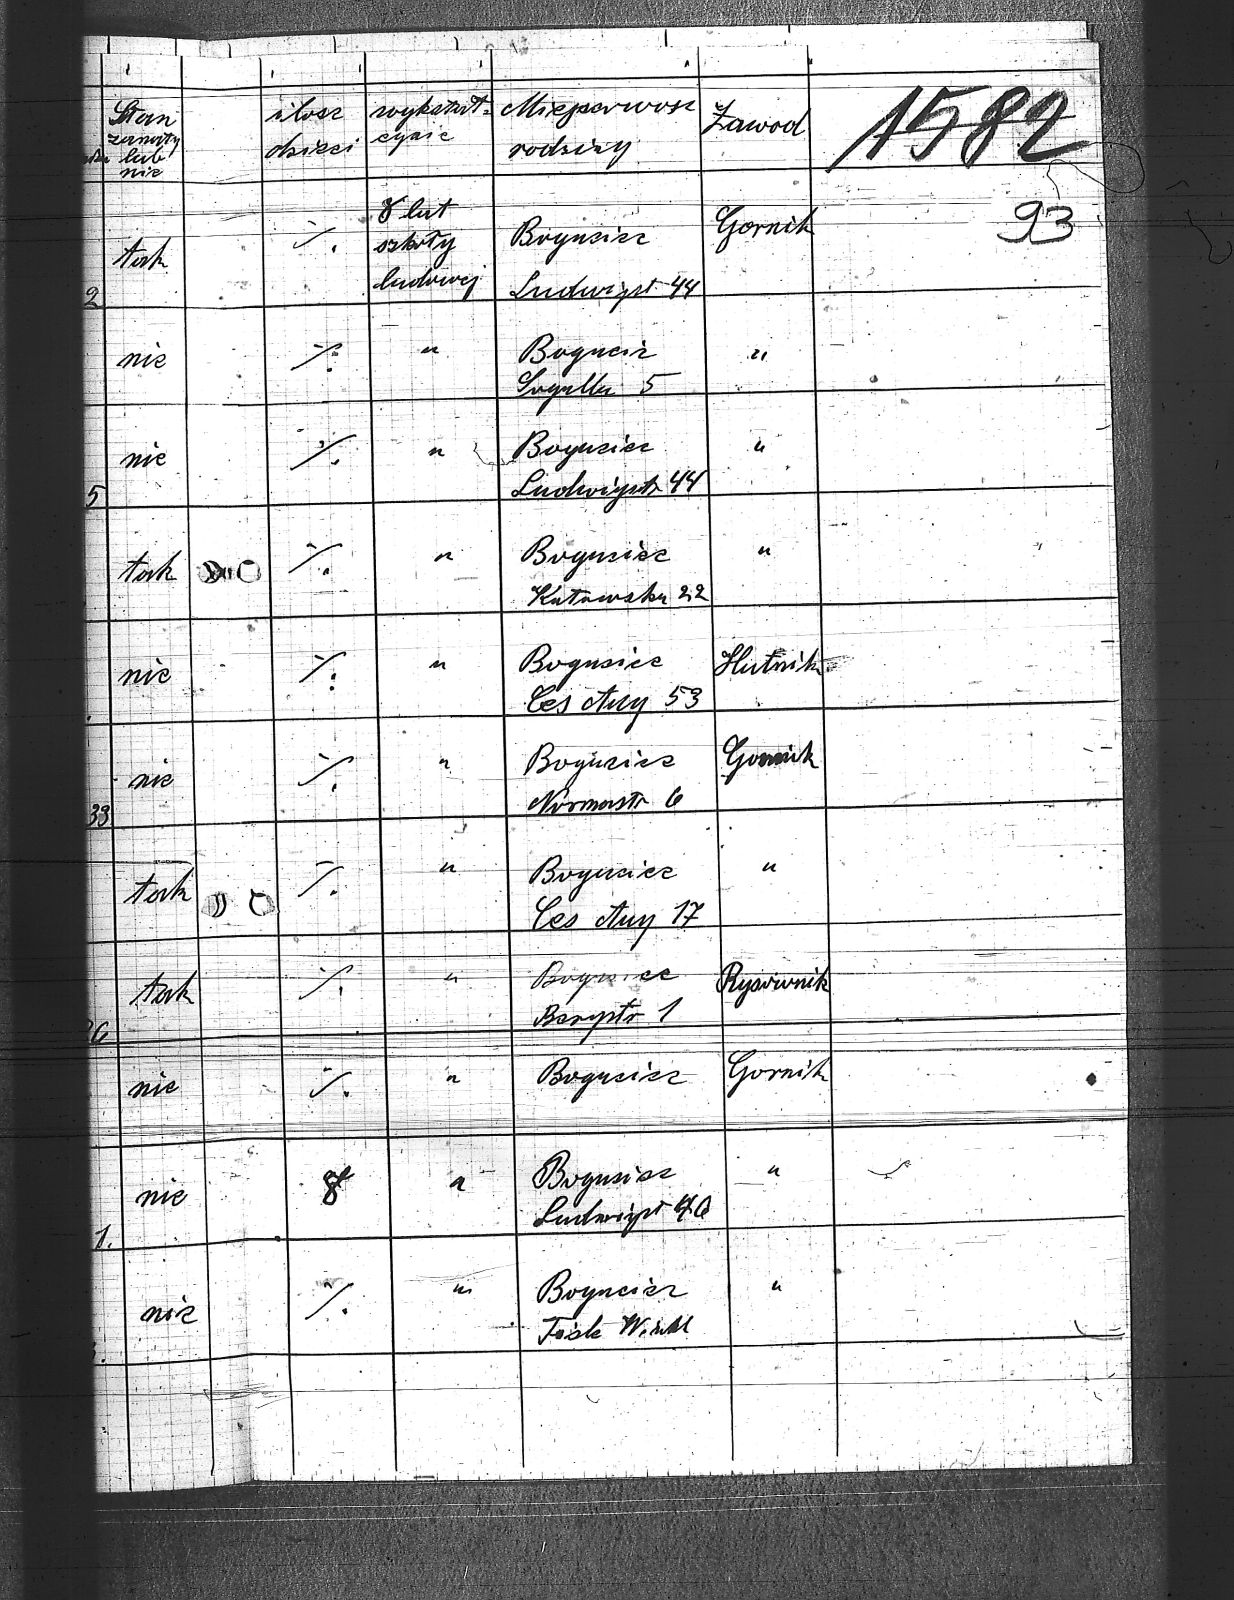 Stan żonaty lub nie | ilosc dzieci | wykształcenie | Miejscowosc rodziny | Zawod
1582
93
tak | ·/. | 8 lat szkoły ludowej | Bogucice Ludwigstr 44 | Gornik
2
nie | ·/. | " | Bogucice 5 | "
nie | ·/. | " | Bogucice Ludwigstr 44 | "
5
tak | ·/. | " | Bogucice Katowska 22 | "
nie | ·/. | " | Bogucice Ces Aug 53 | Hutnik
nie | ·/. | " | Bogucice Normastr 6 | Gornik
33
tak | ·/. | " | Bogucice Ces Aug 17 | "
tak | ·/. | " | Bogucice Bergstr 1 | Rysownik
6
nie | ·/. | " | Bogucice | Gornik
nie | 8 | " | Bogucice Ludwigst | "
1.
nie | ·/. | " | Bogucice | "